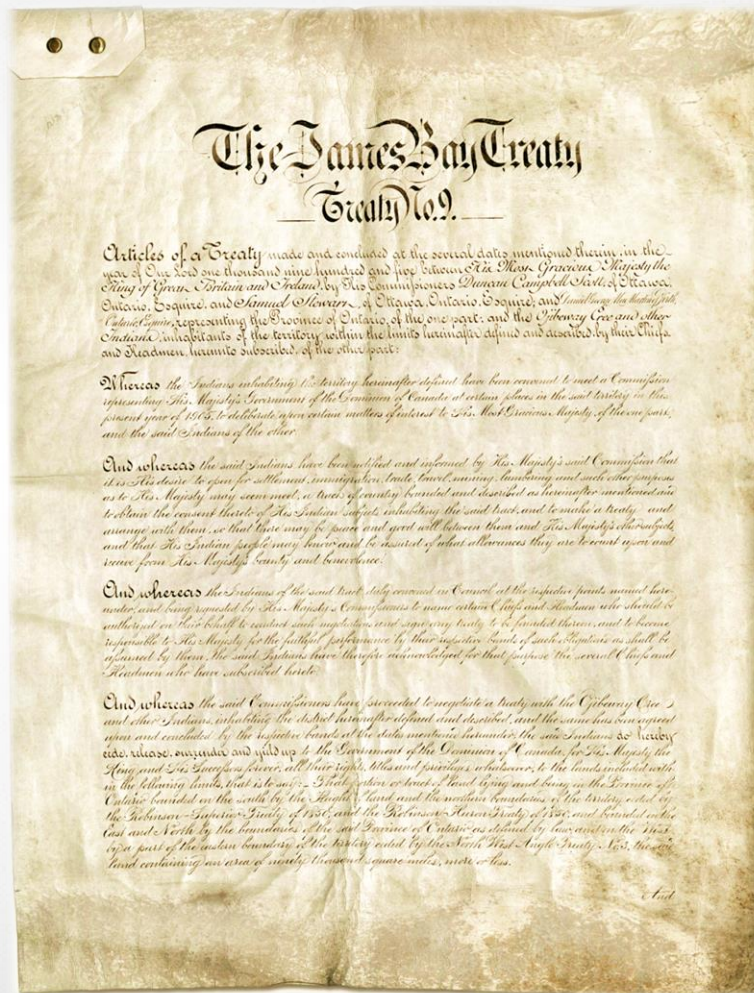 The James Bay Treaty
Treaty No. 9.
Articles of a Treaty made and concluded at the several dates mentioned therein, in the
year of Our Lord one thousand nine hundred and five between His Most Gracious Majesty the
King of Great Britain and Ireland, by His Commissioners Duncan Campbell Scott, of Ottawa,
Ontario, Esquire, and Samuel Stewart, of Ottawa, Ontario, Esquire; and Daniel George MacMartin of Perth,
Ontario, Esquire, representing the Province of Ontario, of the one part; and the Ojibeway Cree and other
Indians, inhabitants of the territory within the limits hereinafter defined and described, by their Chiefs,
and Headmen hereunto subscribed, of the other part:
Whereas the Indians inhabiting the territory hereinafter defined have been convened to meet a Commission
representing His Majesty's Government of the Dominion of Canada at certain places in the said territory in this
present year of 1905, to deliberate upon certain matters of interest to His Most Gracious Majesty, of the one part,
and the said Indians of the other.
And whereas the said Indians have been notified and informed by His Majesty's said Commission that
it is His desire to open for settlement, immigration, trade, travel, mining, lumbering and such other purposes
as to His Majesty may seem meet, a tract of country bounded and described as hereinafter mentioned and
to obtain the consent thereto of His Indian subjects inhabiting the said tract, and to make a treaty and
arrange with them, so that there may be peace and good will between them and His Majesty's other subjects,
and that His Indian people may know and be assured of what allowances they are to count upon and
receive from His Majesty's bounty and benevolence.
And whereas the Indians of the said tract, duly convened in Council at the respective points named here-
under, and being requested by His Majesty's Commissioners to name certain Chiefs and Headmen who should be
authorized on their behalf to conduct such negotiations and sign any treaty to be founded thereon, and to become
responsible to His Majesty for the faithful performance by their respective bands of such obligations as shall be
assumed by them, the said Indians have therefore acknowledged for that purpose the several Chiefs and
Headmen who have subscribed hereto.
And whereas the said Commissioners have proceeded to negotiate a treaty with the Ojibeway Cree
and other Indians, inhabiting the district hereinafter defined and described, and the same has been agreed
upon and concluded by the respective bands at the dates mentioned hereunder, the said Indians do hereby
cede, release, surrender and yield up to the Government of the Dominion of Canada, for His Majesty the
King and His Successors forever, all their rights, titles and privileges whatsoever, to the lands included with-
in the following limits, that is to say:- That portion or tract of land lying and being in the Province of
Ontario bounded on the south by the Height of Land and the northern boundaries of the territory ceded by
the Robinson-Superior Treaty of 1850, and the Robinson-Huron Treaty of 1850, and bounded on the
East and North by the boundaries of the said Province of Ontario as defined by law, and on the West
by a part of the eastern boundary of the territory ceded by the North West Angle Treaty No. 3, the said
land containing an area of ninety thousand square miles, more or less.
And